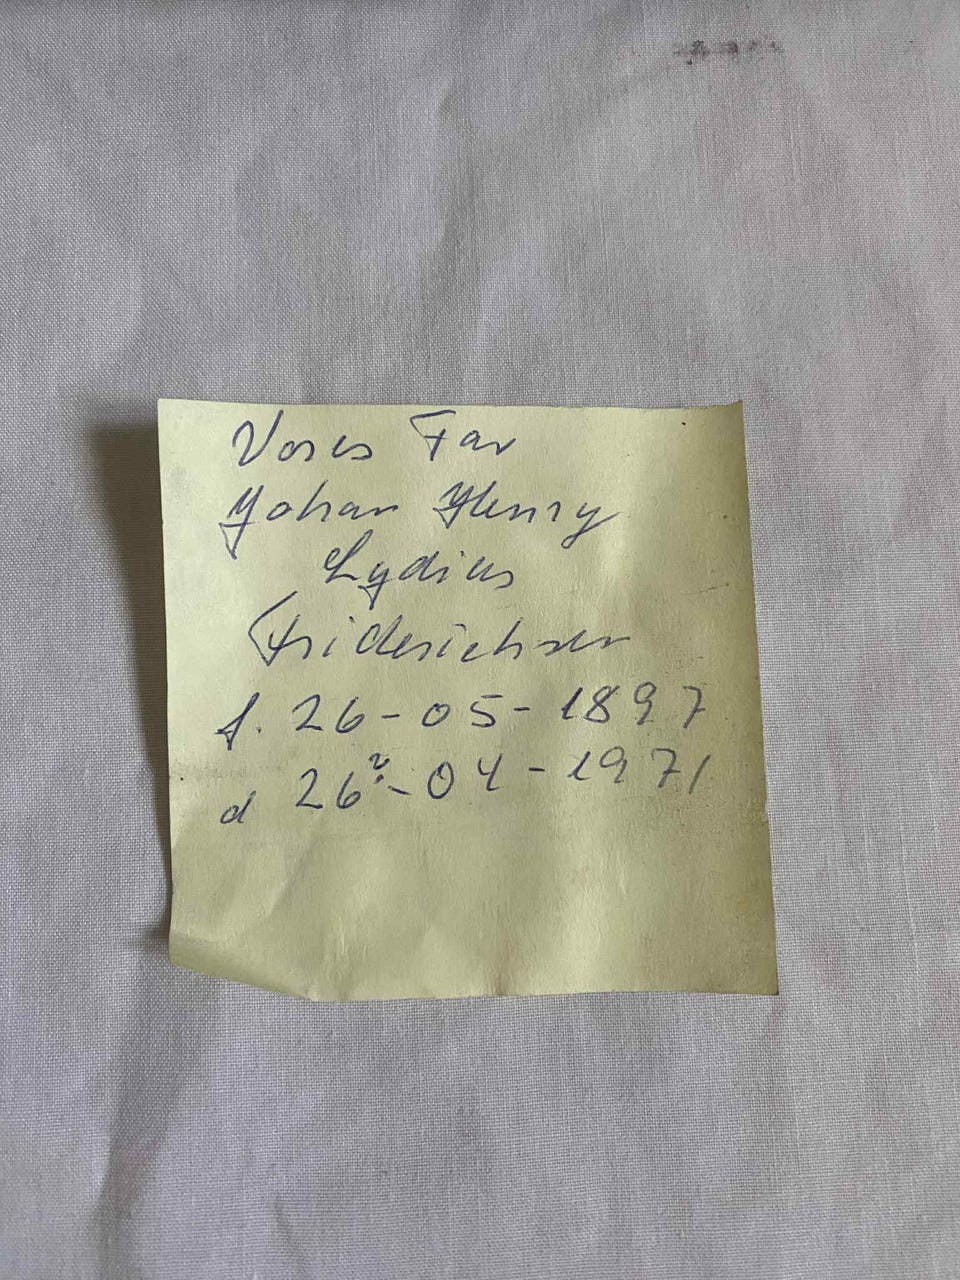 Vores Far
Johan Henry
Lydius
Friderichsen
f. 26-05-1897
d 26?-04-1971